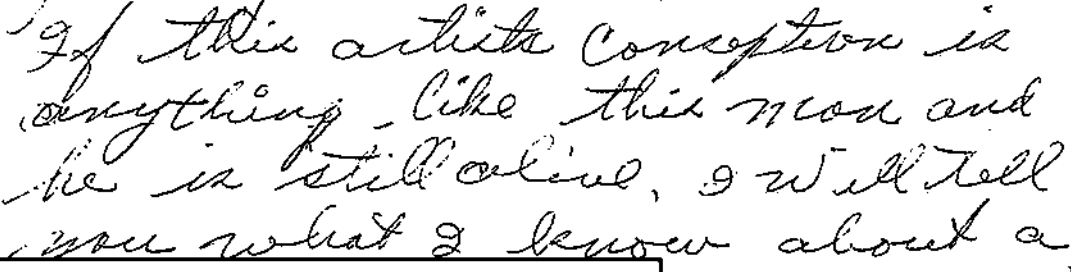 If this artists conception is
anything like this man and
he is still alive, I will tell
you what I know about a